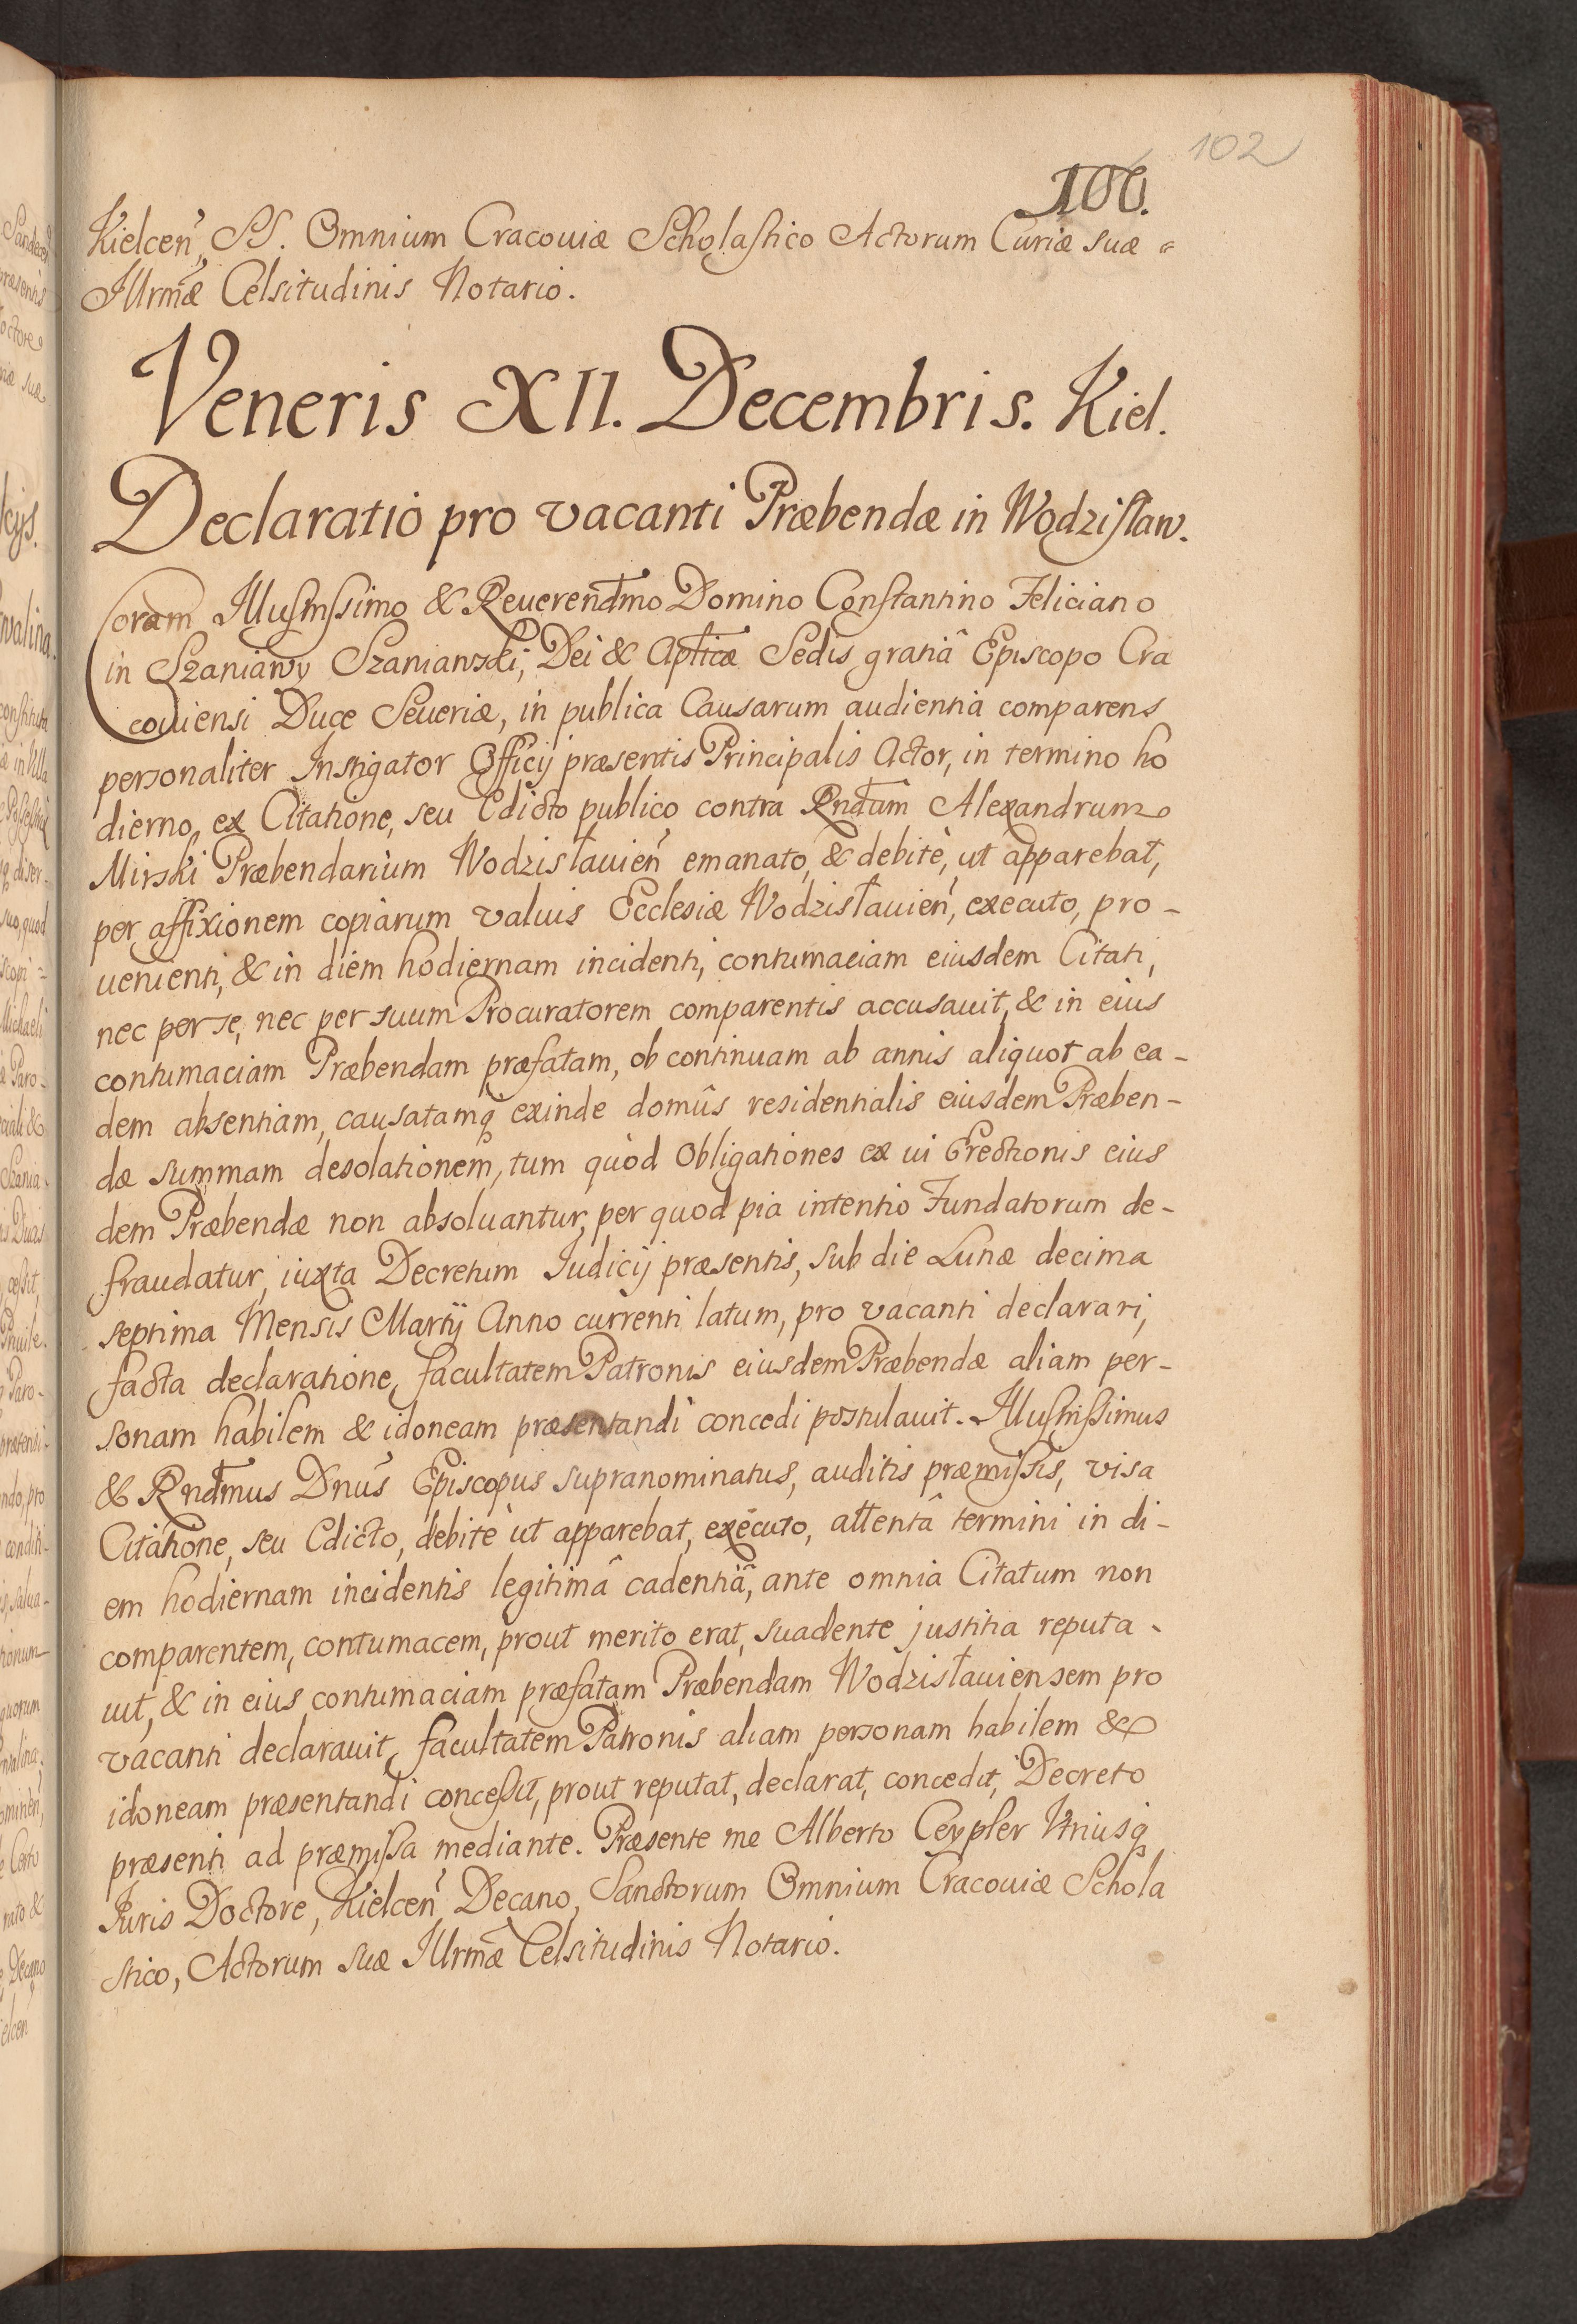 102
106.
Kielceñ, SS. Omnium Cracouiæ Scholastico Actorum Curiæ suæ
Illrmæ Celsitudinis Notario.
Veneris XII. Decembris. Kiel.
Declaratio pro vacanti Præbendæ in Wodzisław.
Coram Illustrissimo & Reuerendmo Domino Constantino Feliciano
in Szaniawy Szaniawski, Dei & Aplicæ Sedis gratiâ Episcopo Cra
couiensi Duce Seueriæ, in publica Causarum audientia comparens
personaliter Instigator Officij præsentis Principalis Actor, in termino ho
dierno, ex Citatione, seu Edicto publico contra Rndum Alexandrum
Mirski Præbendarium Wodzisłauieñ emanato, & debitè, ut apparebat,
per affixionem copiarum valuis Ecclesiæ Wodzisłauieñ, executo, pro-
uenienti, & in diem hodiernam incidenti, contumaciam eiusdem Citati,
nec per se, nec per suum Procuratorem comparentis accusauit, & in eius
contumaciam Præbendam præfatam, ob continuam ab annis aliquot ab ea-
dem absentiam, causatamq exinde domûs residentialis eiusdem Præben-
dæ summam desolationem, tum quòd Obligationes ex ui Erectionis eius
dem Præbendæ non absoluantur, per quod pia intentio Fundatorum de-
fraudatur, iuxta Decretum Iudicij præsentis, sub die Lunæ decima
septima Mensis Martij Anno currenti latum, pro vacanti declarari,
facta declaratione, facultatem Patronis eiusdem Præbendæ aliam per-
sonam habilem & idoneam præsentandi concedi postulauit. Illustrissimus
& Rndmus Dnus Episcopus supranominatus, auditis præmissis, visa
Citatione, seu Edicto, debitè ut apparebat, executo, attentâ termini in di-
em hodiernam incidentis legitimâ cadentiâ, ante omnia Citatum non
comparentem, contumacem, prout merito erat, suadente justitia reputa-
uit, & in eius contumaciam præfatam Præbendam Wodzisłauiensem pro
vacanti declarauit, facultatem Patronis aliam personam habilem &
idoneam præsentandi concessit, prout reputat, declarat, concedit, Decreto
præsenti ad præmissa mediante. Præsente me Alberto Ceypler Vtriusq
Iuris Doctore, Kielceñ Decano, Sanctorum Omnium Cracouiæ Schola
stico, Actorum suæ Illrmæ Celsitudinis Notario.